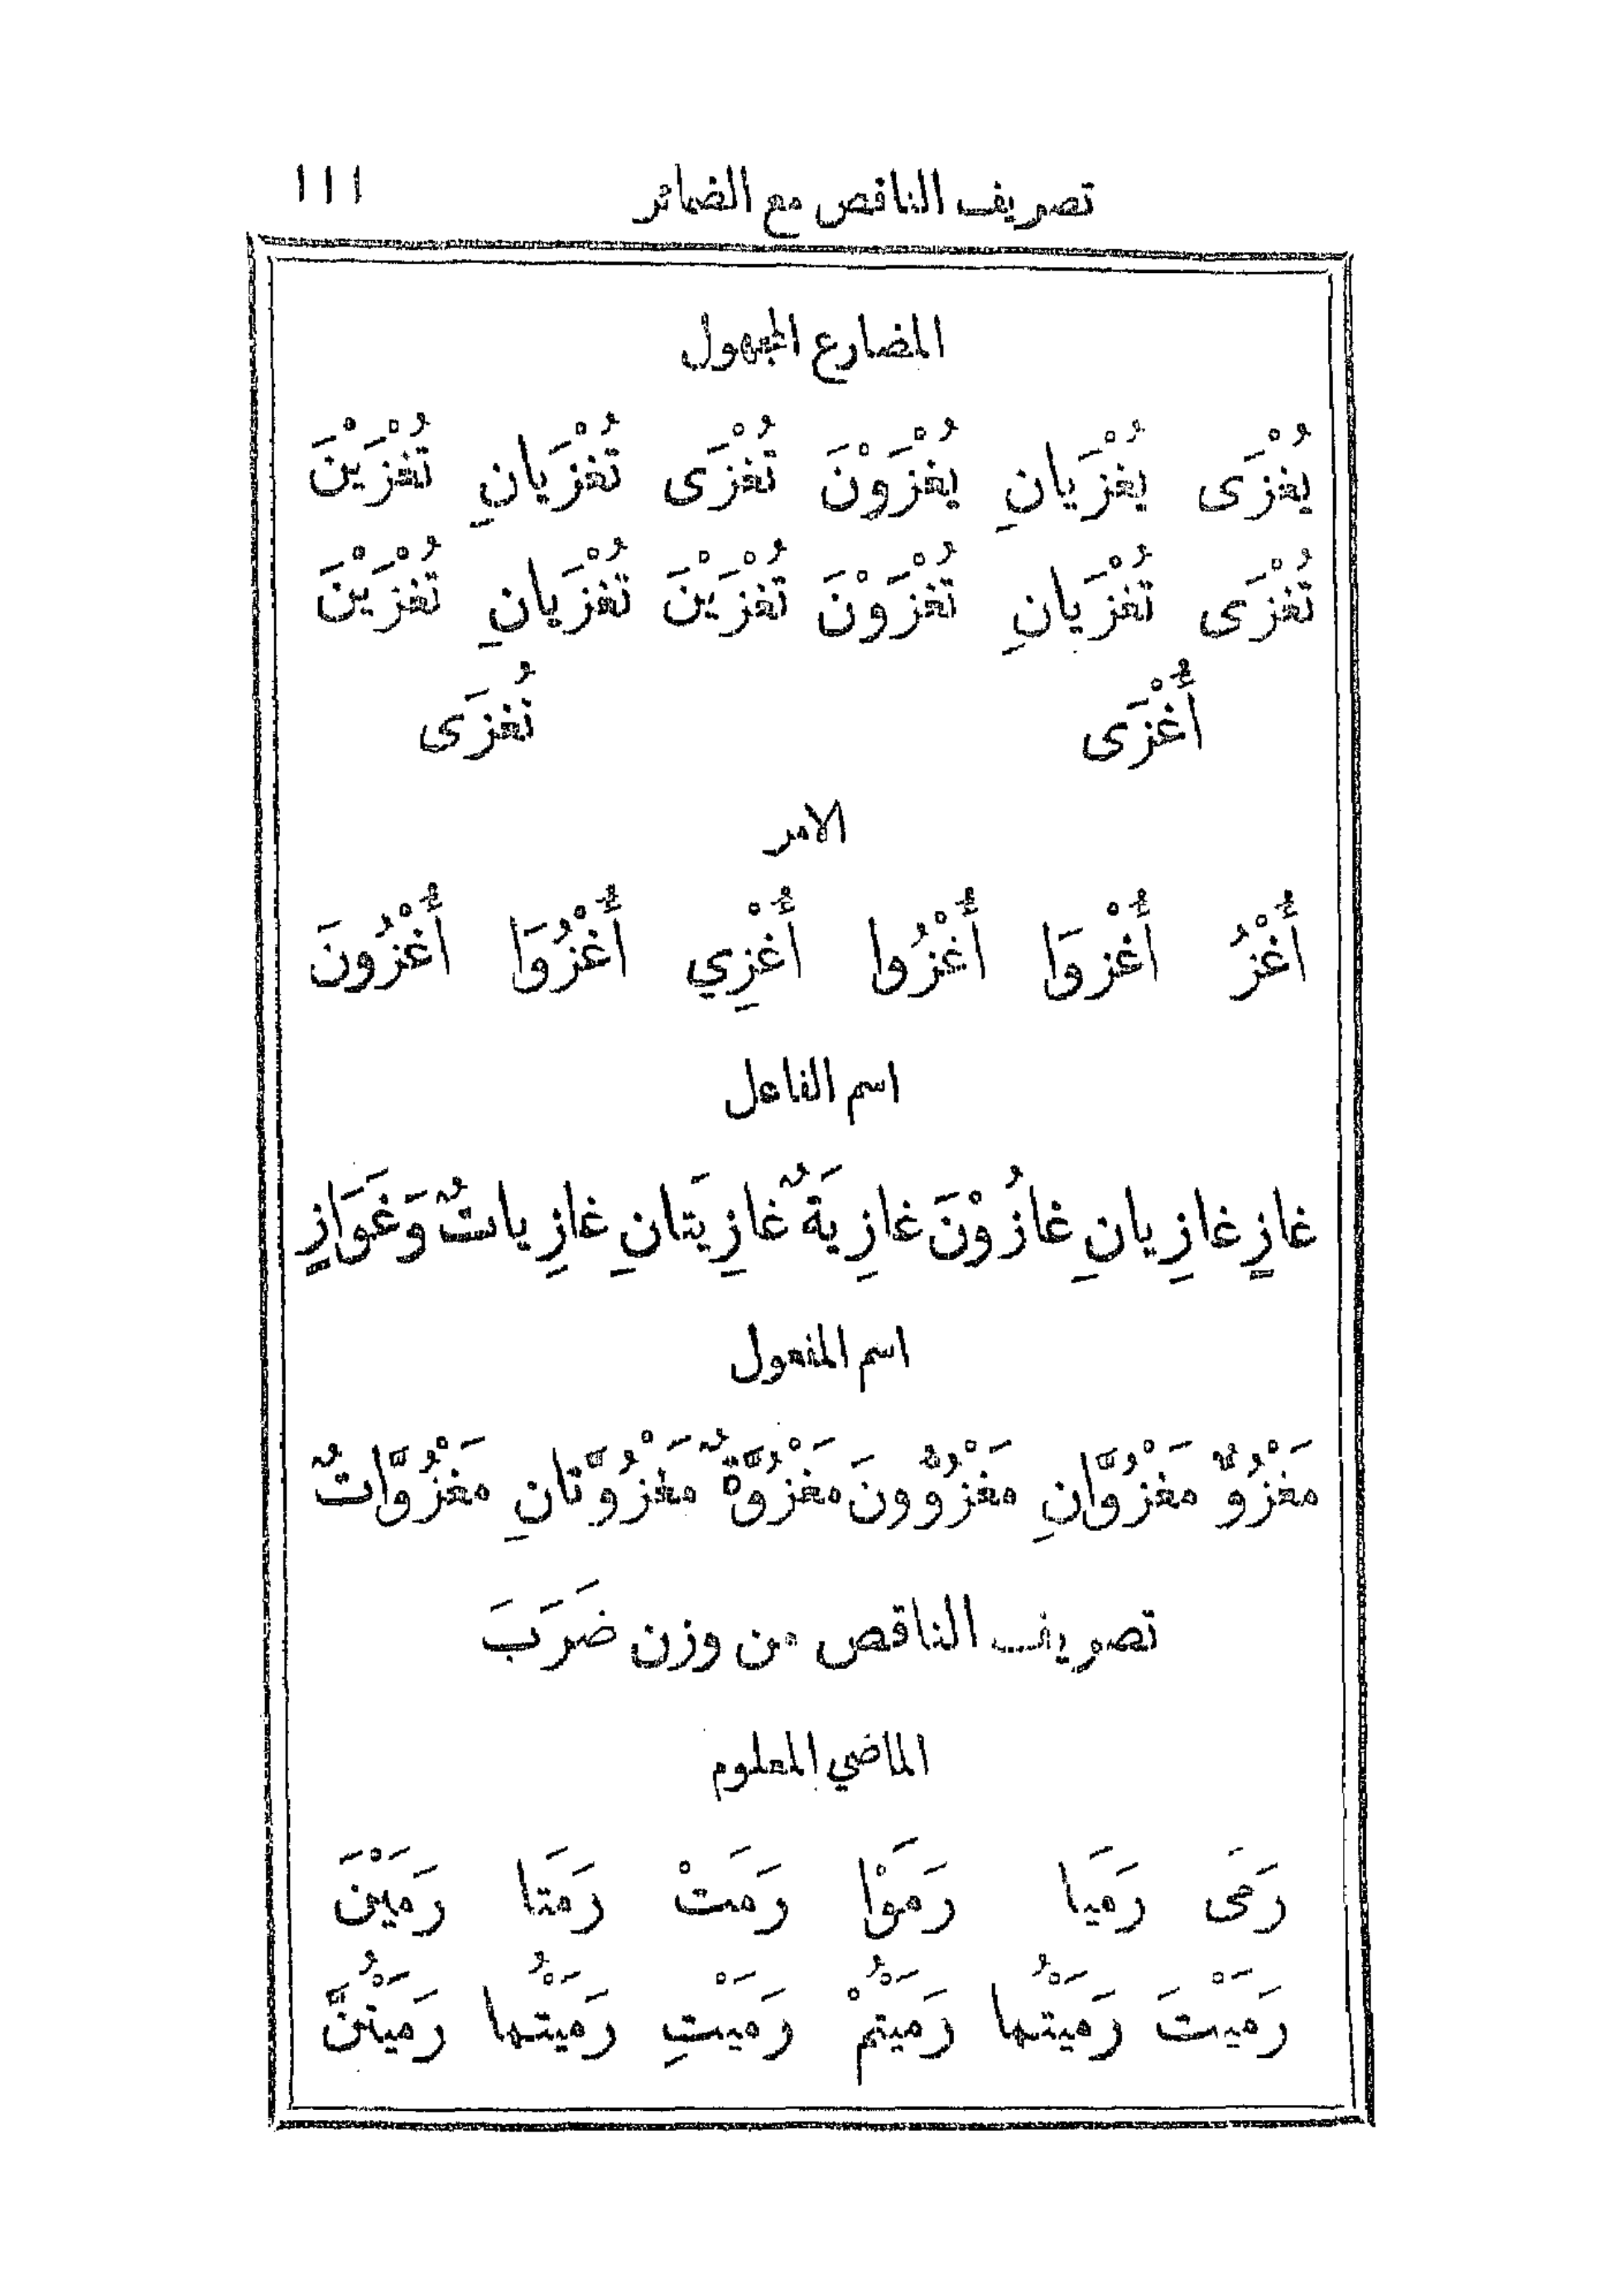 تصريف الناقص مع الضمائر ١١١
المضارع المجهول
يُغْزَى يُغْزَيانِ يُغْزَوْنَ تُغْزَى تُغْزَيانِ تُغْزَيْنَ
تُغْزَى تُغْزَيانِ تُغْزَوْنَ تُغْزَيْنَ تُغْزَيانِ تُغْزَيْنَ
أُغْزَى نُغزَى
الامر
أُغْزُ أُغْزوَا أُغْزُوا أُغْزِي أُغْزُوَا أُغْزُونَ
اسم الفاعل
غازٍ غازِيانِ غازُوْنَ غازِيَةٌ غازِيَتانِ غازِياتٌ وَغَوَازٍ
اسم المفعول
مَغْزُوٌّ مَغْزُوَّانِ مَغْزُوُّونَ مَغْزُوَّةٌ مَغْزُوَّتانِ مَغْزُوَّاتٌ
تصريف الناقص من وزن ضَرَبَ
الماضي المعلوم
رَمَى رَمَيا رَمَوْا رَمَتْ رَمَتا رَمَيْنَ
رَمَيْتَ رَمَيْتُما رَمَيْتُمْ رَمَيْتِ رَمَيْتُما رَمَيْتُنَّ